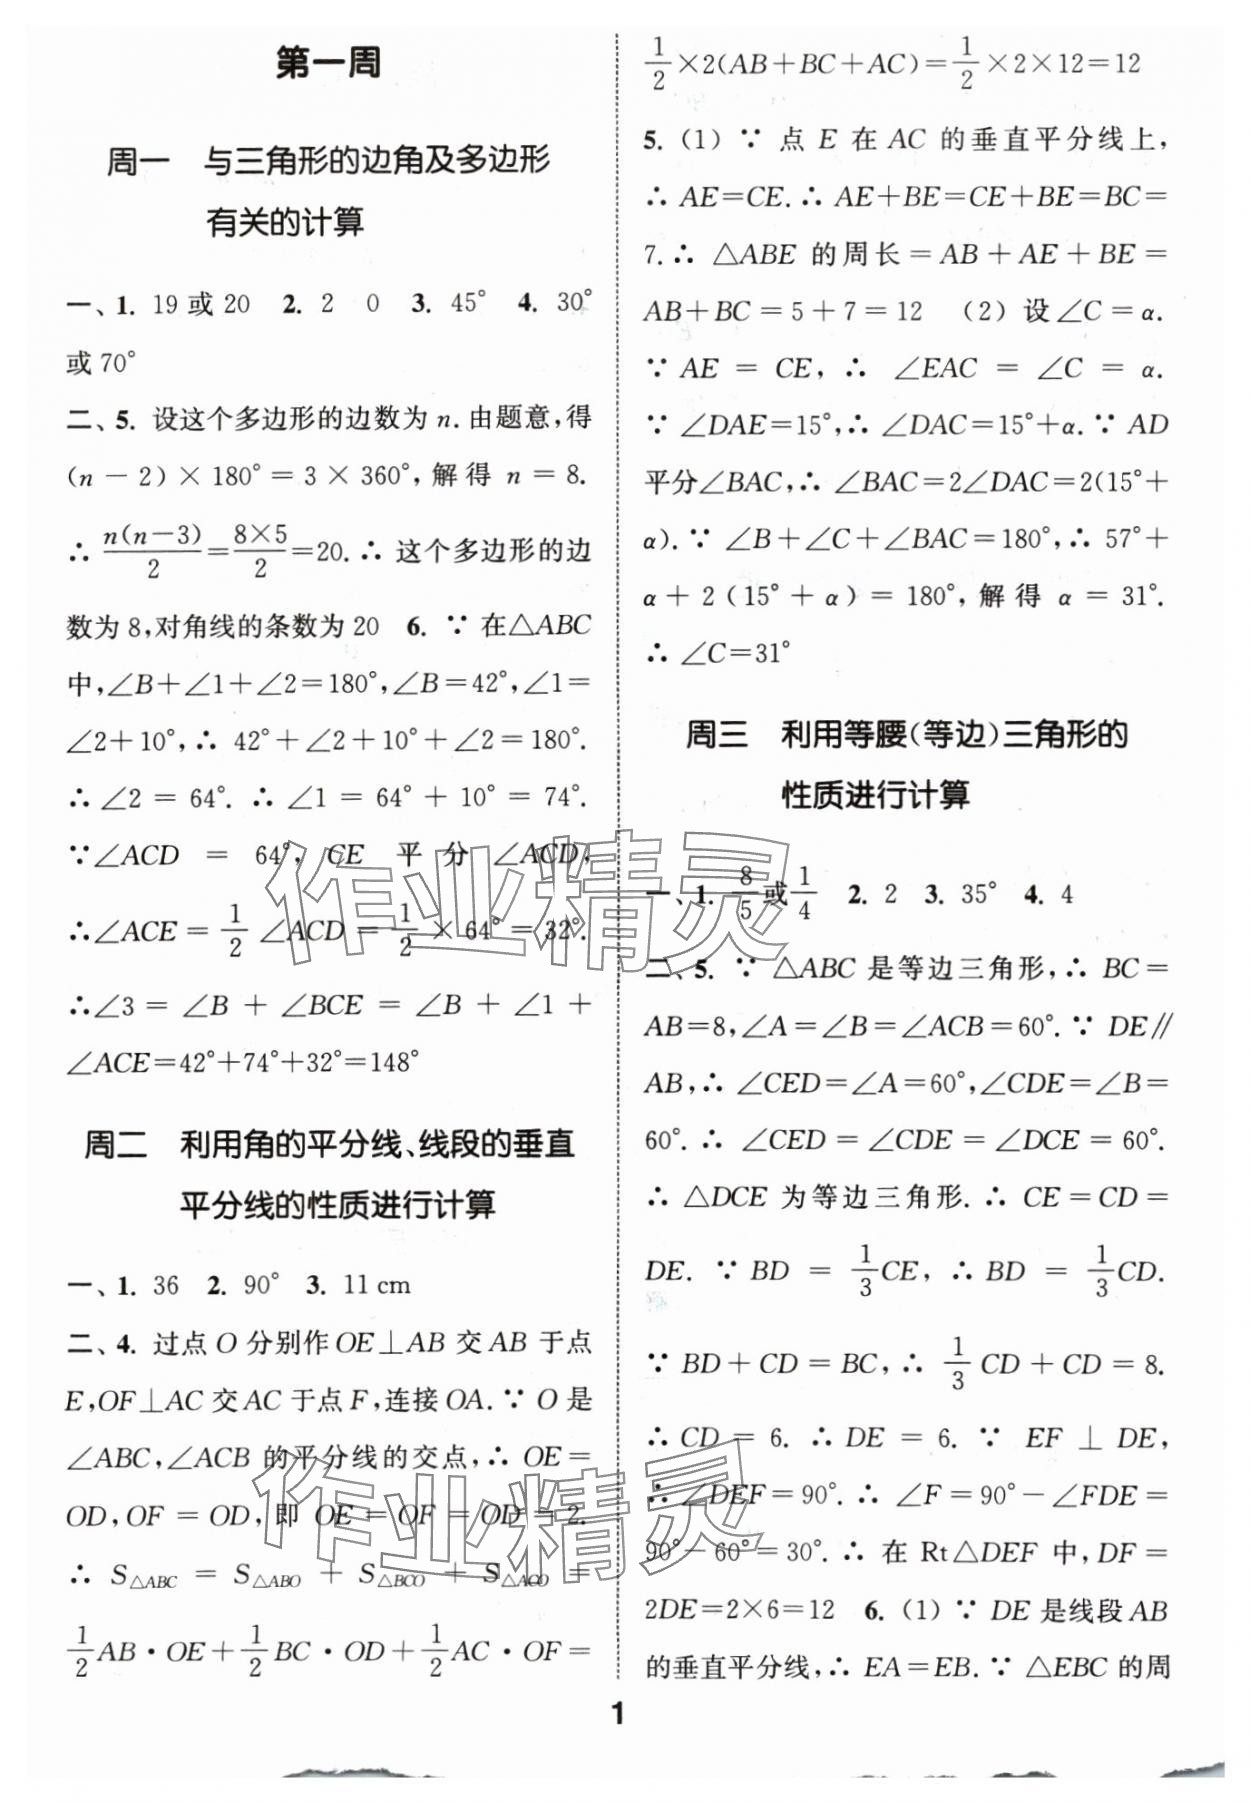 第一周
周一　与三角形的边角及多边形
有关的计算
一、1. 19或20　2. 2　0　3. 45°　4. 30°
或70°
二、5. 设这个多边形的边数为n.由题意,得
(n－2)×180°＝3×360°,解得 n＝8.
∴ n(n－3)/2＝8×5/2＝20.∴ 这个多边形的边
数为8,对角线的条数为20　6. ∵ 在△ABC
中,∠B＋∠1＋∠2＝180°,∠B＝42°,∠1＝
∠2＋10°,∴ 42°＋∠2＋10°＋∠2＝180°.
∴∠2＝64°.∴∠1＝64°＋10°＝74°.
∵∠ACD＝64°, CE 平分∠ACD,
∴∠ACE＝1/2∠ACD＝1/2×64°＝32°.
∴∠3＝∠B＋∠BCE＝∠B＋∠1＋
∠ACE＝42°＋74°＋32°＝148°
周二　利用角的平分线、线段的垂直
平分线的性质进行计算
一、1. 36　2. 90°　3. 11 cm
二、4. 过点O分别作OE⊥AB交AB于点
E,OF⊥AC交AC于点F,连接OA.∵ O是
∠ABC,∠ACB的平分线的交点,∴ OE＝
OD,OF＝OD,即 OE＝OF＝OD＝2.
∴ S△ABC＝S△ABO＋S△BCO＋S△ACO＝
1/2AB·OE＋1/2BC·OD＋1/2AC·OF＝
1/2×2(AB＋BC＋AC)＝1/2×2×12＝12
5. (1) ∵ 点E在AC的垂直平分线上,
∴ AE＝CE.∴ AE＋BE＝CE＋BE＝BC＝
7.∴ △ABE的周长＝AB＋AE＋BE＝
AB＋BC＝5＋7＝12　(2) 设∠C＝α.
∵ AE＝CE,∴ ∠EAC＝∠C＝α.
∵ ∠DAE＝15°,∴ ∠DAC＝15°＋α.∵ AD
平分∠BAC,∴ ∠BAC＝2∠DAC＝2(15°＋
α).∵ ∠B＋∠C＋∠BAC＝180°,∴ 57°＋
α＋2(15°＋α)＝180°,解得 α＝31°.
∴ ∠C＝31°
周三　利用等腰(等边)三角形的
性质进行计算
一、1. 8/5或1/4　2. 2　3. 35°　4. 4
二、5. ∵ △ABC是等边三角形,∴ BC＝
AB＝8,∠A＝∠B＝∠ACB＝60°.∵ DE∥
AB,∴ ∠CED＝∠A＝60°,∠CDE＝∠B＝
60°.∴ ∠CED＝∠CDE＝∠DCE＝60°.
∴ △DCE为等边三角形.∴ CE＝CD＝
DE.∵ BD＝1/3CE,∴ BD＝1/3CD.
∵ BD＋CD＝BC,∴ 1/3CD＋CD＝8.
∴ CD＝6.∴ DE＝6.∵ EF⊥DE,
∴ ∠DEF＝90°.∴ ∠F＝90°－∠FDE＝
90°－60°＝30°.∴ 在Rt△DEF中,DF＝
2DE＝2×6＝12　6. (1) ∵ DE是线段AB
的垂直平分线,∴ EA＝EB.∵ △EBC的周
1
作业精灵
作业精灵